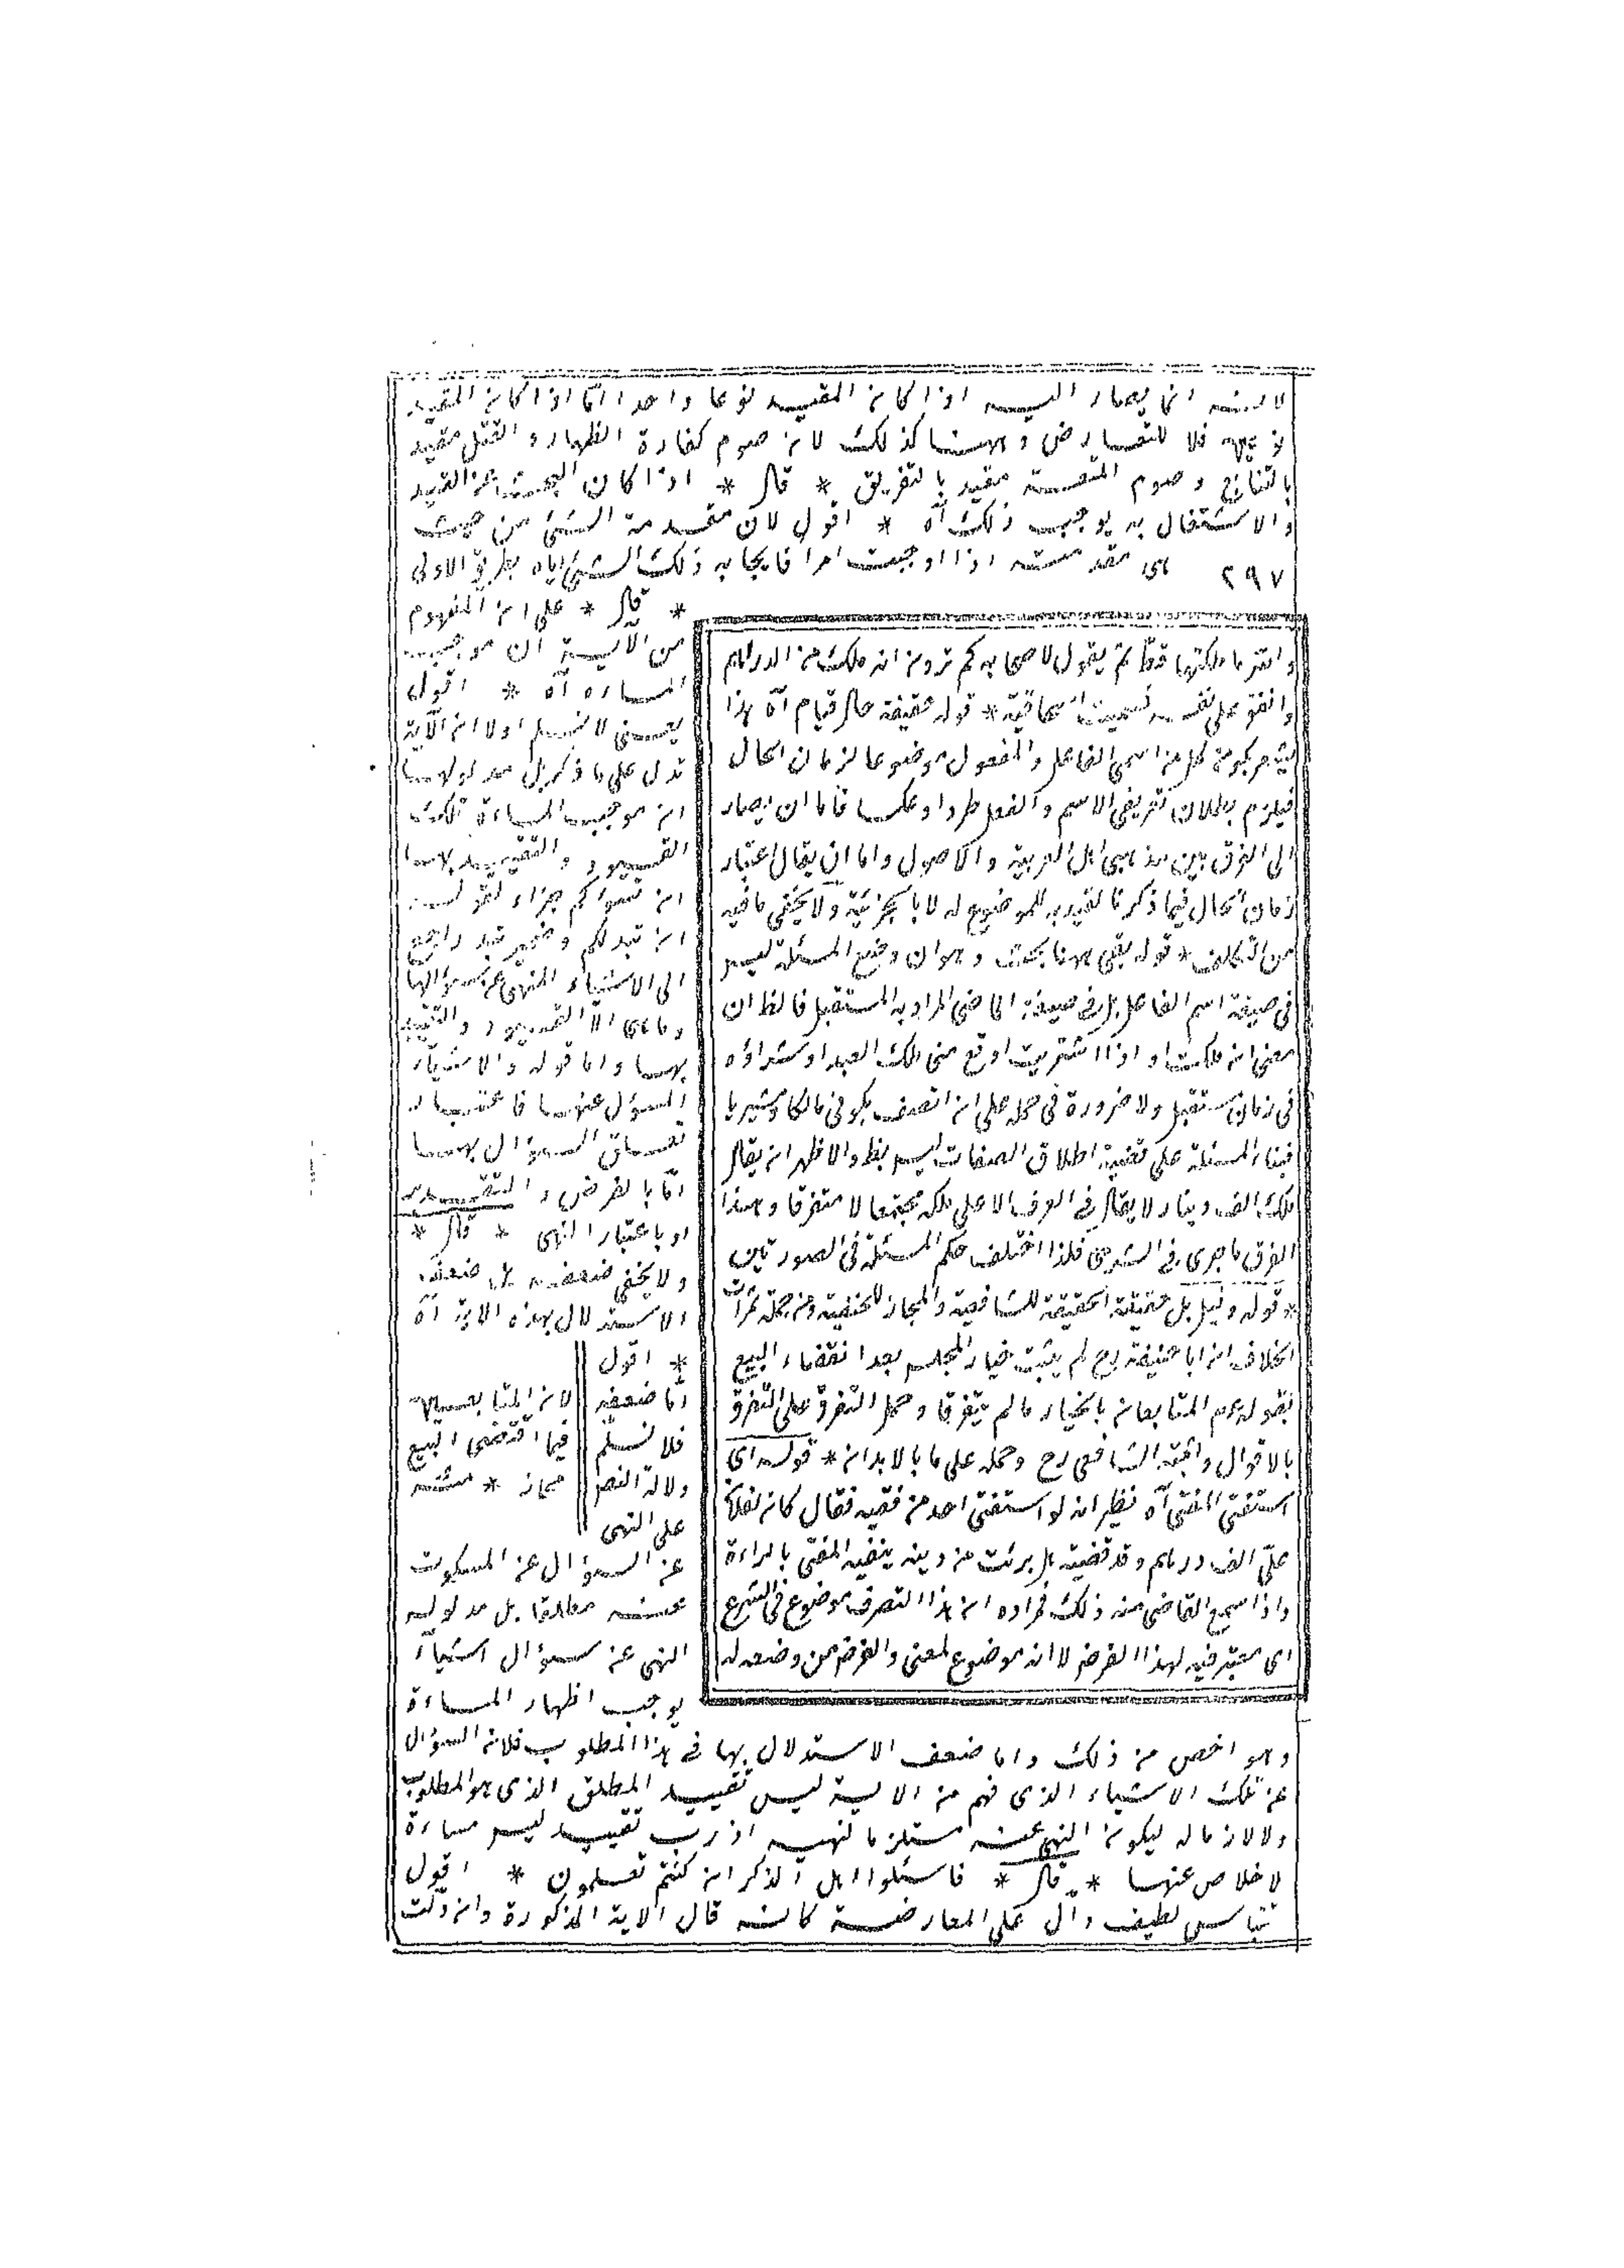 لانه انما يصار اليه اذا كان المقيد نوعا واحدا امّا اذا كان المقيد
نوعين فلا للتعارض وههنا كذلك لان صوم كفارة الظهار والقتل مقيد
بالتتابع وصوم المتعة مقيد بالتفريق * قال * اذا كان البحث عن القيد
والاشتغال به يوجب ذلك آه * اقول لان مقدمة الشئ من حيث
هى مقدمته اذا اوجبت امرا فايجابه ذلك الشئ اياه بطريق الاولى
٢٩٧
* قال * على ان المفهوم
من الآية ان موجب
المساءه آه * اقول
يعنى لا نسلم اولا ان الآية
تدل على ما ذكر بل مدلولها
ان موجب المساءة تلك
القيود والتقييد بها
ان تسؤكم جزاء لقوله
ان تبدلكم وضمير تبد راجع
الى الاشياء المنهى عن سؤالها
وما هى الّا القيود والتقييد
بها واما قوله والاشياء
المسؤل عنها فاعتبار
تعلق السؤال بها
امّا بالفرض والتقدير
او باعتبار النهى * قال *
ولا يخفى ضعفه بل ضعف
الاستدلال بهذه الآية آه
* اقول
امّا ضعفه
فلا نسلّم
دلالة النص
على النهى
لان المتابعين
فيما اقتضى البيع
مجاز * منه
عن السؤال عن المسكوت
عنه مطلقا بل مدلوله
النهى عن سؤال اشياء
يوجب اظهار المساءة
وهو اخص من ذلك واما ضعف الاستدلال بها فى هذا المطلوب فلان السؤال
عن تلك الاشياء الذى فهم من الآية ليس تقييد المطلق الذى هو المطلوب
ولا لازما له ليكون النهى عنه مستلزما لنهيه اذ رب تقييد ليس مساءة
لا خلاص عنها * قال * فاسئلوا اهل الذكر ان كنتم تعلمون * اقول
لطيف دال على المعارضة كانه قال الآية المذكورة وان دلت
والله ما ملكتها قطّ ثم يقول لاصحابه كم ترون انه ملك من الدراهم
وانفق على نفسه اسحاقية * قوله حقيقة حال قيام آه هذا
يشعر بكون كل من اسمى الفاعل والمفعول موضوعا لزمان الحال
فيلزم بطلان تعريفى الاسم والفعل طردا وعكسا فاما ان يصار
الى الفرق بين مذهبى اهل العربية والاصول واما ان يقال اعتبار
زمان الحال فيما ذكرنا لتقيد به للموضوع له لا بالجزئية ولا يخفى ما فيه
من التكلف * قوله بقى ههنا بحث وهو ان وضع المسئلة ليس
فى صيغة اسم الفاعل بل فى صيغة الماضى المراد به المستقبل فالظ ان
معنى ان ملكت او اذا اشتريت اوقع منى ملك العبد او شراؤه
فى زمان مستقبل ولا ضرورة فى حمله على ان اتصف بكونى مالكا ومشتريا
فبناء المسئلة على قضية اطلاق الصفات ليس بظ والاظهر ان يقال
ملك الف دينار لا يقال فى العرف الا على ملكه مجتمعا لا متفرقا وهذا
الفرق ما جرى فى الشرى فلذا اختلف حكم المسئلة فى الصورتين
* قوله وقيل بل حقيقة الحقيقة للشافعية والمجاز للحنفية ومن جملة ثمرات
الخلاف ان ابا حنيفة رح لم يثبت خيار المجلس بعد انقضاء البيع
بقوله عم المتبايعان بالخيار ما لم يتفرقا وحمل التفرق على التفرق
بالاقوال واثبته الشافعى رح وحمله على ما بالابدان * قوله اى
استفتى المفتى آه نظيره انه لو استفتى احد من فقيه فقال كان لفلان
علىّ الف درهم وقد قضيته هل برئت من دينه يفتيه المفتى بالبراءة
واذا سمع القاضى منه ذلك فمراده ان هذا التصرف موضوع فى الشرع
اى معتبر فيه لهذا الغرض لا انه موضوع لمعنى والغرض من وضعه له